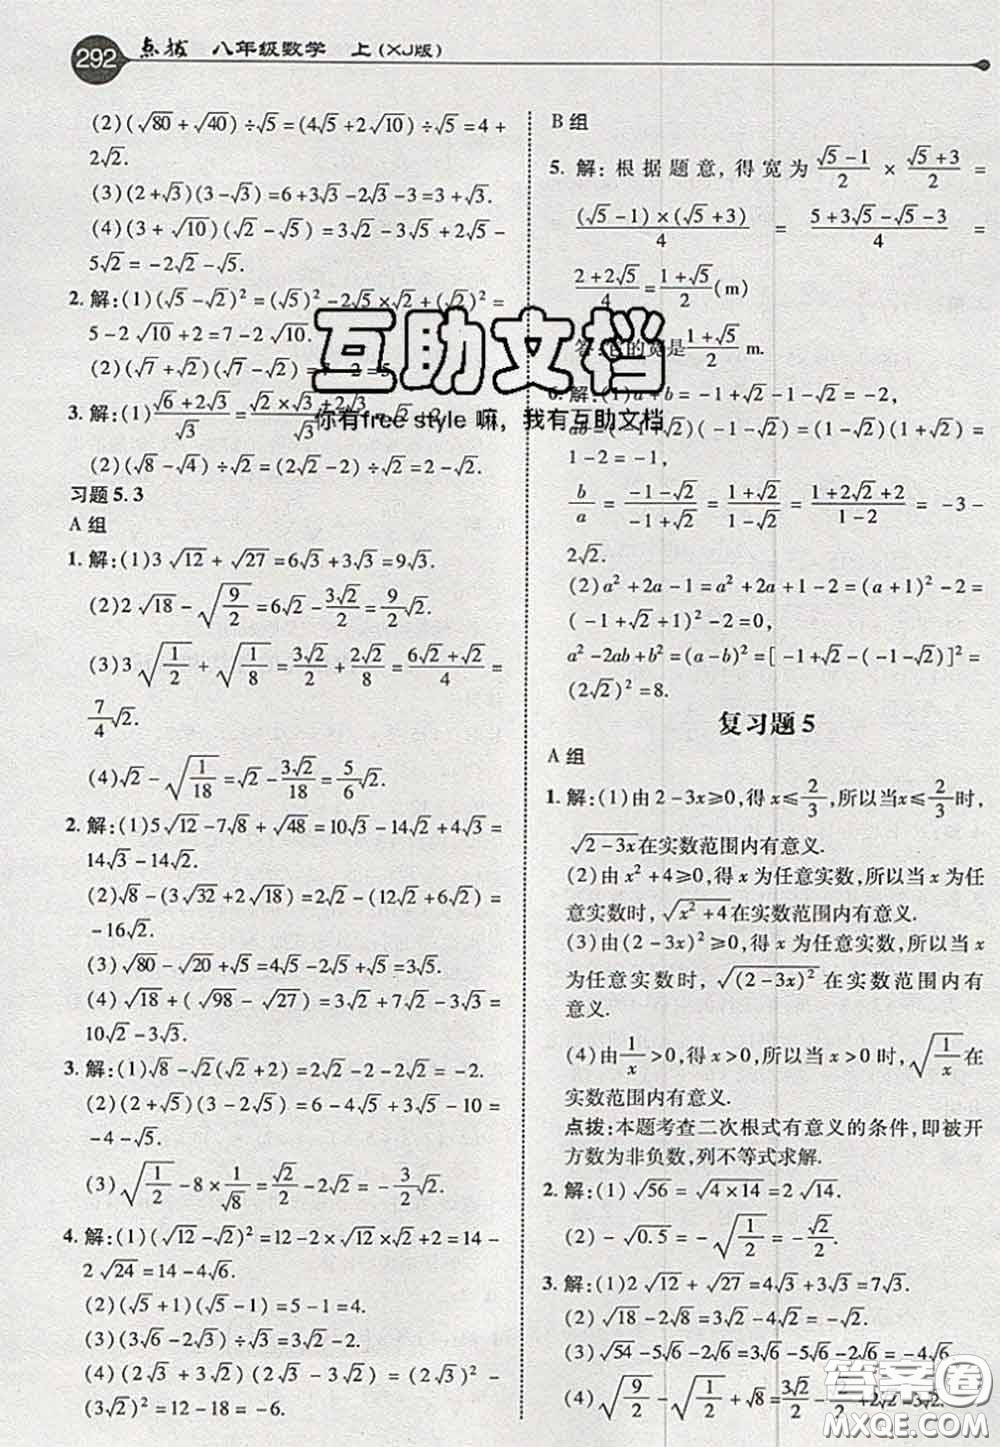 292 点拨 八年级数学 上(XJ版)
(2)(√80+√40)÷√5=(4√5+2√10)÷√5=4+
2√2.
(3)(2+√3)(3-√3)=6+3√3-2√3-3=3+√3.
(4)(3+√10)(√2-√5)=3√2-3√5+2√5-
5√2=-2√2-√5.
2.解:(1)(√5-√2)²=(√5)²-2√5×√2+(√2)²=
5-2√10+2=7-2√10.
(2)(√7+√2)(√7-√2)=7-2=5.
3.解:(1)(√6+2√3)/√3=(√2×√3+2√3)/√3=√2+2.
(2)(√8-√4)÷√2=(2√2-2)÷√2=2-√2.
习题5.3
A 组
1.解:(1)3√12+√27=6√3+3√3=9√3.
(2)2√18-√(9/2)=6√2-3√2/2=9/2√2.
(3)3√(1/2)+√(1/8)=3√2/2+2√2/8=(6√2+√2)/4=
7/4√2.
(4)√2-√(1/18)=√2-3√2/18=5/6√2.
2.解:(1)5√12-7√8+√48=10√3-14√2+4√3=
14√3-14√2.
(2)√8-(3√32+2√18)=2√2-(12√2+6√2)=
-16√2.
(3)√80-√20+√5=4√5-2√5+√5=3√5.
(4)√18+(√98-√27)=3√2+7√2-3√3=
10√2-3√3.
3.解:(1)√8-√2(√2+2)=2√2-2-2√2=-2.
(2)(2+√5)(3-2√5)=6-4√5+3√5-10=
-4-√5.
(3)√(1/2)-8×1/√8=√2/2-2√2=-3/2√2.
4.解:(1)(√12-√2)²=12-2×√12×√2+2=14-
2√24=14-4√6.
(2)(√5+1)(√5-1)=5-1=4.
(3)(3√6-2√3)÷√3=3√2-2.
(4)(2√3+3√2)(2√3-3√2)=(2√3)²-
(3√2)²=12-18=-6.
B 组
5.解:根据题意,得宽为(√5-1)/2×(√5+3)/2=
(√5-1)×(√5+3)/4=(5+3√5-√5-3)/4=
(2+2√5)/4=(1+√5)/2(m)
答:它的宽是(1+√5)/2 m.
6.解:(1)a+b=-1+√2-1-√2=-2,
ab=(-1+√2)(-1-√2)=(1-√2)(1+√2)=
1-2=-1,
b/a=(-1-√2)/(-1+√2)=(1+√2)/(1-√2)=(1+2√2+2)/(1-2)=-3-
2√2.
(2)a²+2a-1=a²+2a+1-2=(a+1)²-2=
(-1+√2+1)²-2=0,
a²-2ab+b²=(a-b)²=[-1+√2-(-1-√2)]²=
(2√2)²=8.
复习题5
A 组
1.解:(1)由2-3x≥0,得x≤2/3,所以当x≤2/3时,
√(2-3x)在实数范围内有意义.
(2)由x²+4≥0,得x为任意实数,所以当x为任
意实数时,√(x²+4)在实数范围内有意义.
(3)由(2-3x)²≥0,得x为任意实数,所以当x
为任意实数时,√((2-3x)²)在实数范围内有
意义.
(4)由1/x>0,得x>0,所以当x>0时,√(1/x)在
实数范围内有意义.
点拨:本题考查二次根式有意义的条件,即被开
方数为非负数,列不等式求解.
2.解:(1)√56=√(4×14)=2√14.
(2)-√0.5=-√(1/2)=-√2/2.
3.解:(1)2√12+√27=4√3+3√3=7√3.
(2)√18-2√8=3√2-4√2=-√2.
(3)√54-5√6-2√6=3√6-5√6-2√6=-4√6.
(4)√(9/2)-√(1/2)+√8=3√2/2-√2/2+2√2=3√2.
互助文档
你有free style 嘛，我有互助文档
答案圈
MXQE.COM